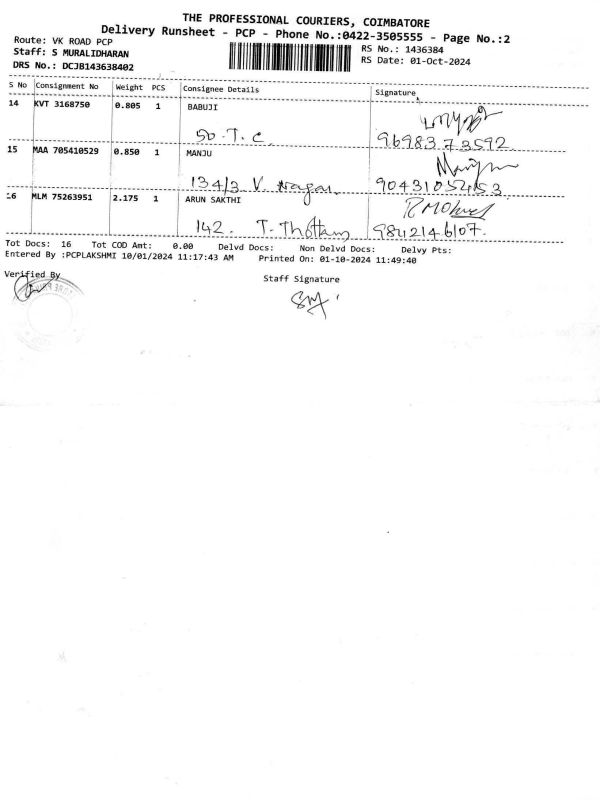 THE PROFESSIONAL COURIERS, COIMBATORE
Delivery Runsheet - PCP - Phone No.:0422-3505555 - Page No.:2
Route: VK ROAD PCP RS No.: 1436384
Staff: S MURALIDHARAN RS Date: 01-Oct-2024
DRS No.: DCJB143638402
S No Consignment No Weight PCS Consignee Details Signature
14 KVT 3168750 0.805 1 BABUJI
50. T. C. 9698373592
15 MAA 705410529 0.850 1 MANJU
134/3 V. Nagar. 9043105453
16 MLM 75263951 2.175 1 ARUN SAKTHI
142. T. Thottam 9842146107.
Tot Docs: 16 Tot COD Amt: 0.00 Delvd Docs: Non Delvd Docs: Delvy Pts:
Entered By :PCPLAKSHMI 10/01/2024 11:17:43 AM Printed On: 01-10-2024 11:49:40
Verified By Staff Signature